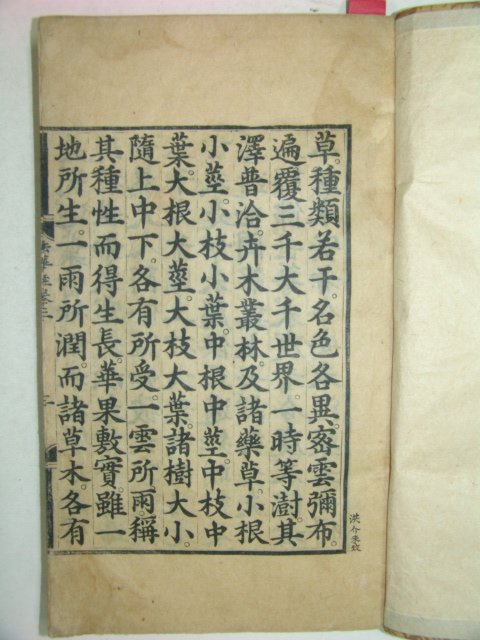 草。種類若干。名色各異。密雲彌布。
遍覆三千大千世界。一時等澍。其
澤普洽。卉木叢林。及諸藥草。小根
小莖。小枝小葉。中根中莖。中枝中
葉。大根大莖。大枝大葉。諸樹大小。
隨上中下。各有所受。一雲所雨。稱
其種性而得生長。華果敷實。雖一
地所生。一雨所潤。而諸草木。各有
法華經卷三